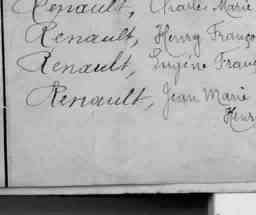 Renault, Charles Marie
Renault, Henry Franço
Renault, Eugène Franç
Renault, Jean Marie
Henr